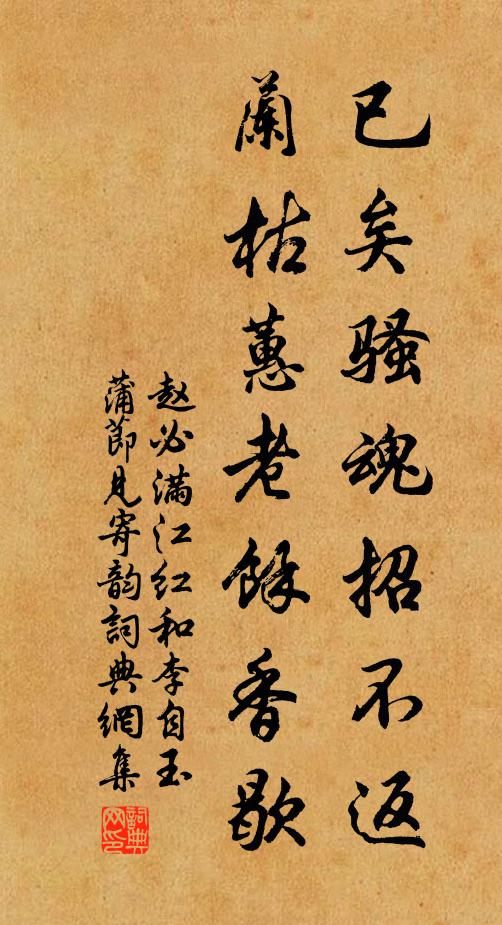 已矣骚魂招不返
蘭枯蕙老餘香歇
赵必满江红和李自玉
蒲節見寄韵詞典網集
詞典
网印